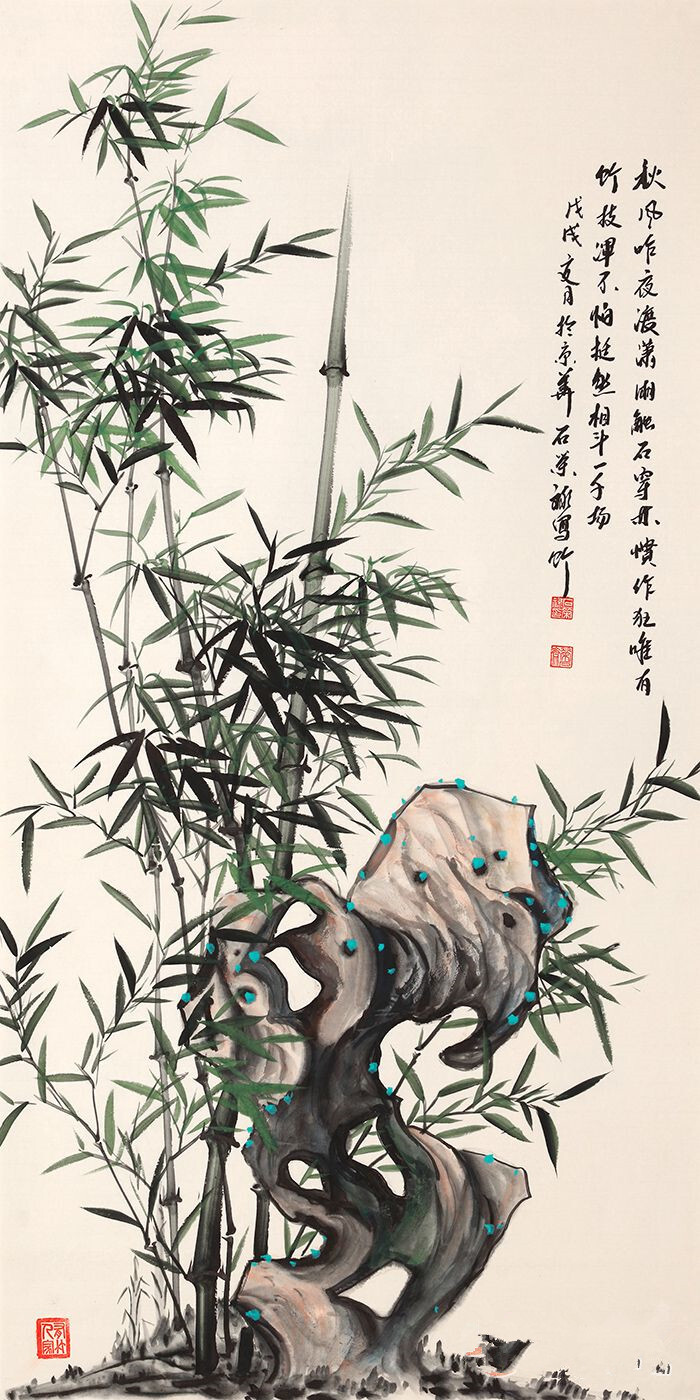 秋风昨夜渡潇湘触石穿林惯作狂唯有
竹枝浑不怕挺然相斗一千场
戊戌夏月於京華石荣禄写竹